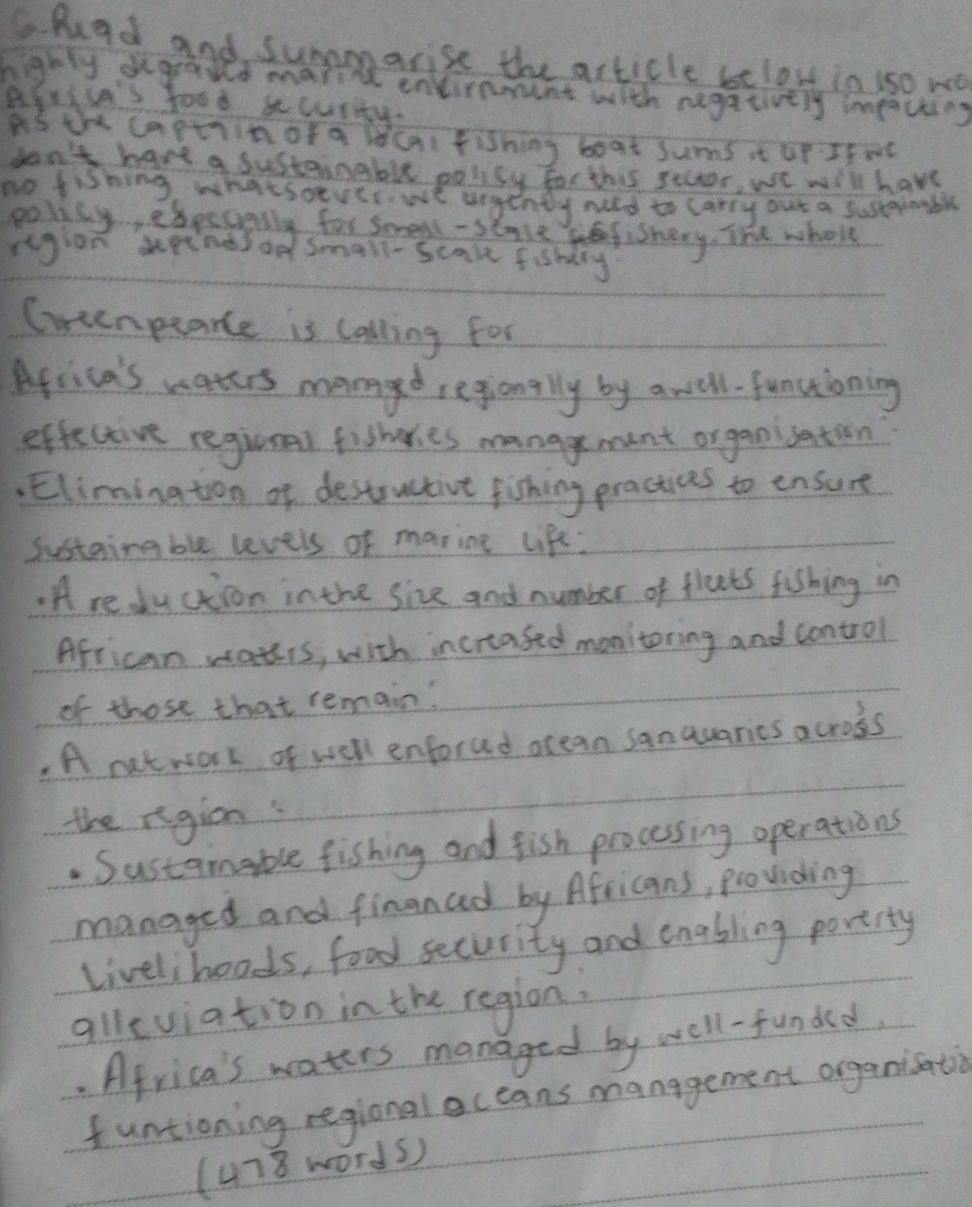 6. Read and summarise the article below in 150 wo
highly degraded marine envirnment with negatively impacting
Africa's food security.
As the captain of a local fishing boat sums it UP. If we
don't have a sustainable policy for this sector, we will have
no fishing whatsoever. we urgently need to carry out a sustainable
policy, especially for small-scale fishery. The whole
region depends on small-scale fishery.
Greenpearce is calling for
Africa's waters managed regionally by a well-functioning
effective regional fisheries management organisation
• Elimination of destructive fishing practices to ensure
sustainable levels of marine life:
• A reduction in the size and number of fleets fishing in
African waters, with increased monitoring and control
of those that remain:
• A network of well enforced ocean sanquaries across
the region:
• Sustainable fishing and fish processing operations
managed and financed by Africans, providing
livelihoods, food security and enabling poverty
alleviation in the region:
• Africa's waters managed by well-funded,
funtioning regional oceans management organisatio
(478 words)